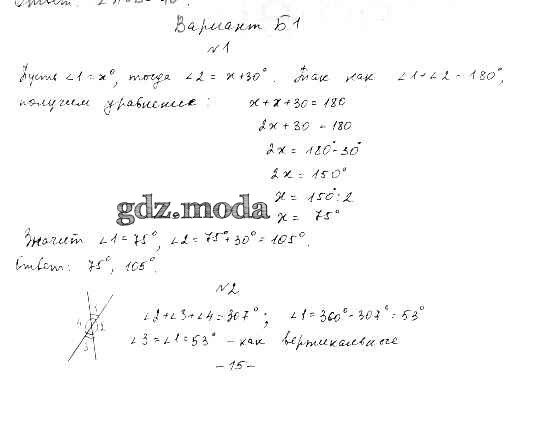 Ответ:
Вариант Б1
№1
Пусть ∠1 = x°, тогда ∠2 = x+30°. Так как ∠1+∠2 = 180°,
получим уравнение: x + x + 30 = 180
2x + 30 = 180
2x = 180° - 30°
2x = 150°
x = 150° : 2
gdz.moda
x = 75°
Значит ∠1 = 75°, ∠2 = 75° + 30° = 105°.
Ответ: 75°, 105°.
№2
∠2+∠3+∠4 = 307°; ∠1 = 360° - 307° = 53°
4 1 2
3
∠3 = ∠1 = 53° - как вертикальные
- 15 -